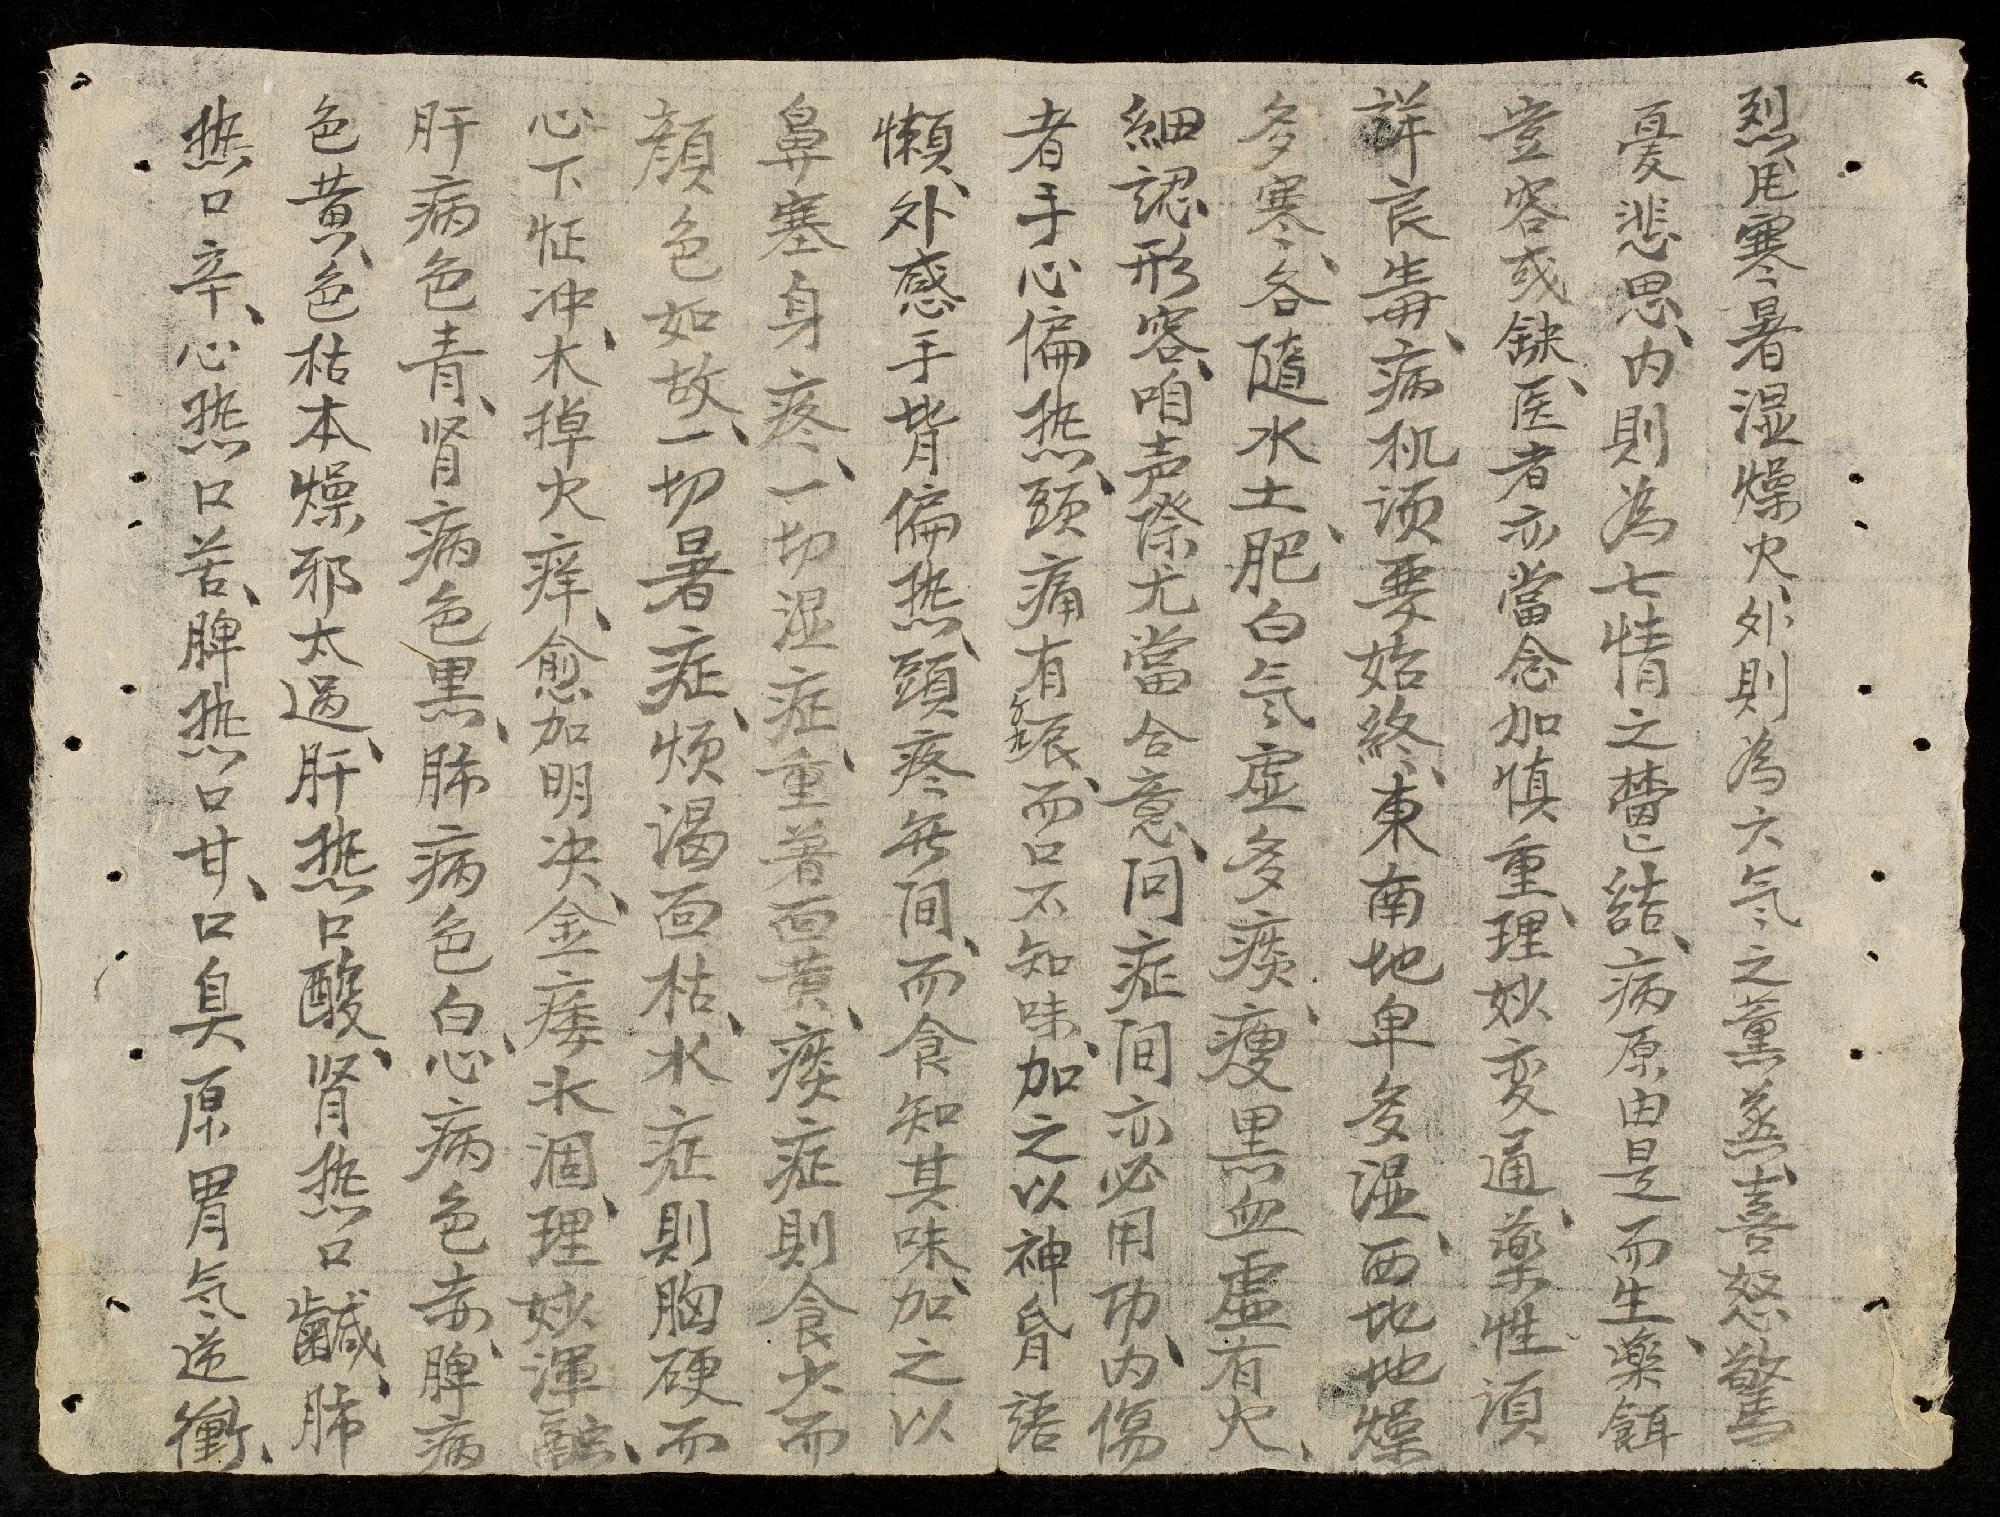 烈凮寒暑湿燥火、外則為六气之薫蒸、喜怒驚
憂悲思、内則為七情之欝結、病原由是而生、藥餌
豈容或缺、医者亦當念加慎重、理妙变通、藥性须
詳良毒、病机须要始終、東南地卑多湿、西北地燥
多寒、各随水土、肥白气虚多痰、瘦黒血虚有火、
細認形容、咱声際尤當合意、问症间亦必用功、内傷
者手心偏热、頭痛有辰、而口不知味、加之以神昏語
懒、外感手背偏热、頭疼無间、而食知其味、加之以
鼻塞身疼、一切湿症、重著面黄、痰症則食少而
顔色如故、一切暑症、烦渴面枯、水症則胸硬而
心下怔冲、木掉火痒、愈加明决、金痿水涸、理妙渾融、
肝病色青、肾病色黒、肺病色白、心病色赤、脾病
色黄、色枯本燥邪太過、肝热口酸、肾热口鹹、肺
热口辛、心热口苦、脾热口甘、口臭原胃气逆衝、